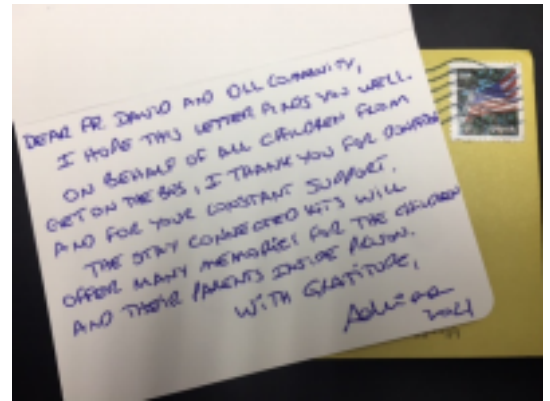 DEAR FR. DAVID AND OLL COMMUNITY,
I HOPE THIS LETTER FINDS YOU WELL.
ON BEHALF OF ALL CHILDREN FROM
GET ON THE BUS, I THANK YOU FOR
AND FOR YOUR CONSTANT SUPPORT.
THE STAY CONNECTED KITS WILL
OFFER MANY MEMORIES FOR THE CHILDREN
AND THEIR PARENTS INSIDE PRISON.
WITH GRATITUDE,
2021